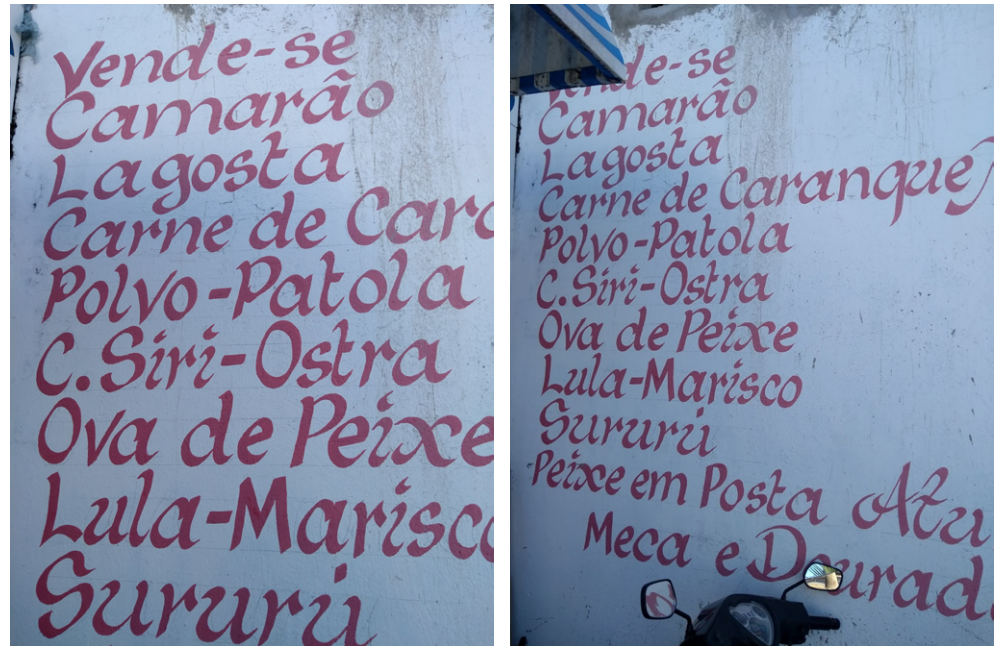 Vende-se
Camarão
Lagosta
Carne de Cara
Polvo-Patola
C. Siri-Ostra
Ova de Peixe
Lula-Marisco
Sururu
Vende-se
Camarão
Lagosta
Carne de Caranque
Polvo-Patola
C. Siri-Ostra
Ova de Peixe
Lula-Marisco
Sururu
Peixe em Posta Atu
Meca e Dourad